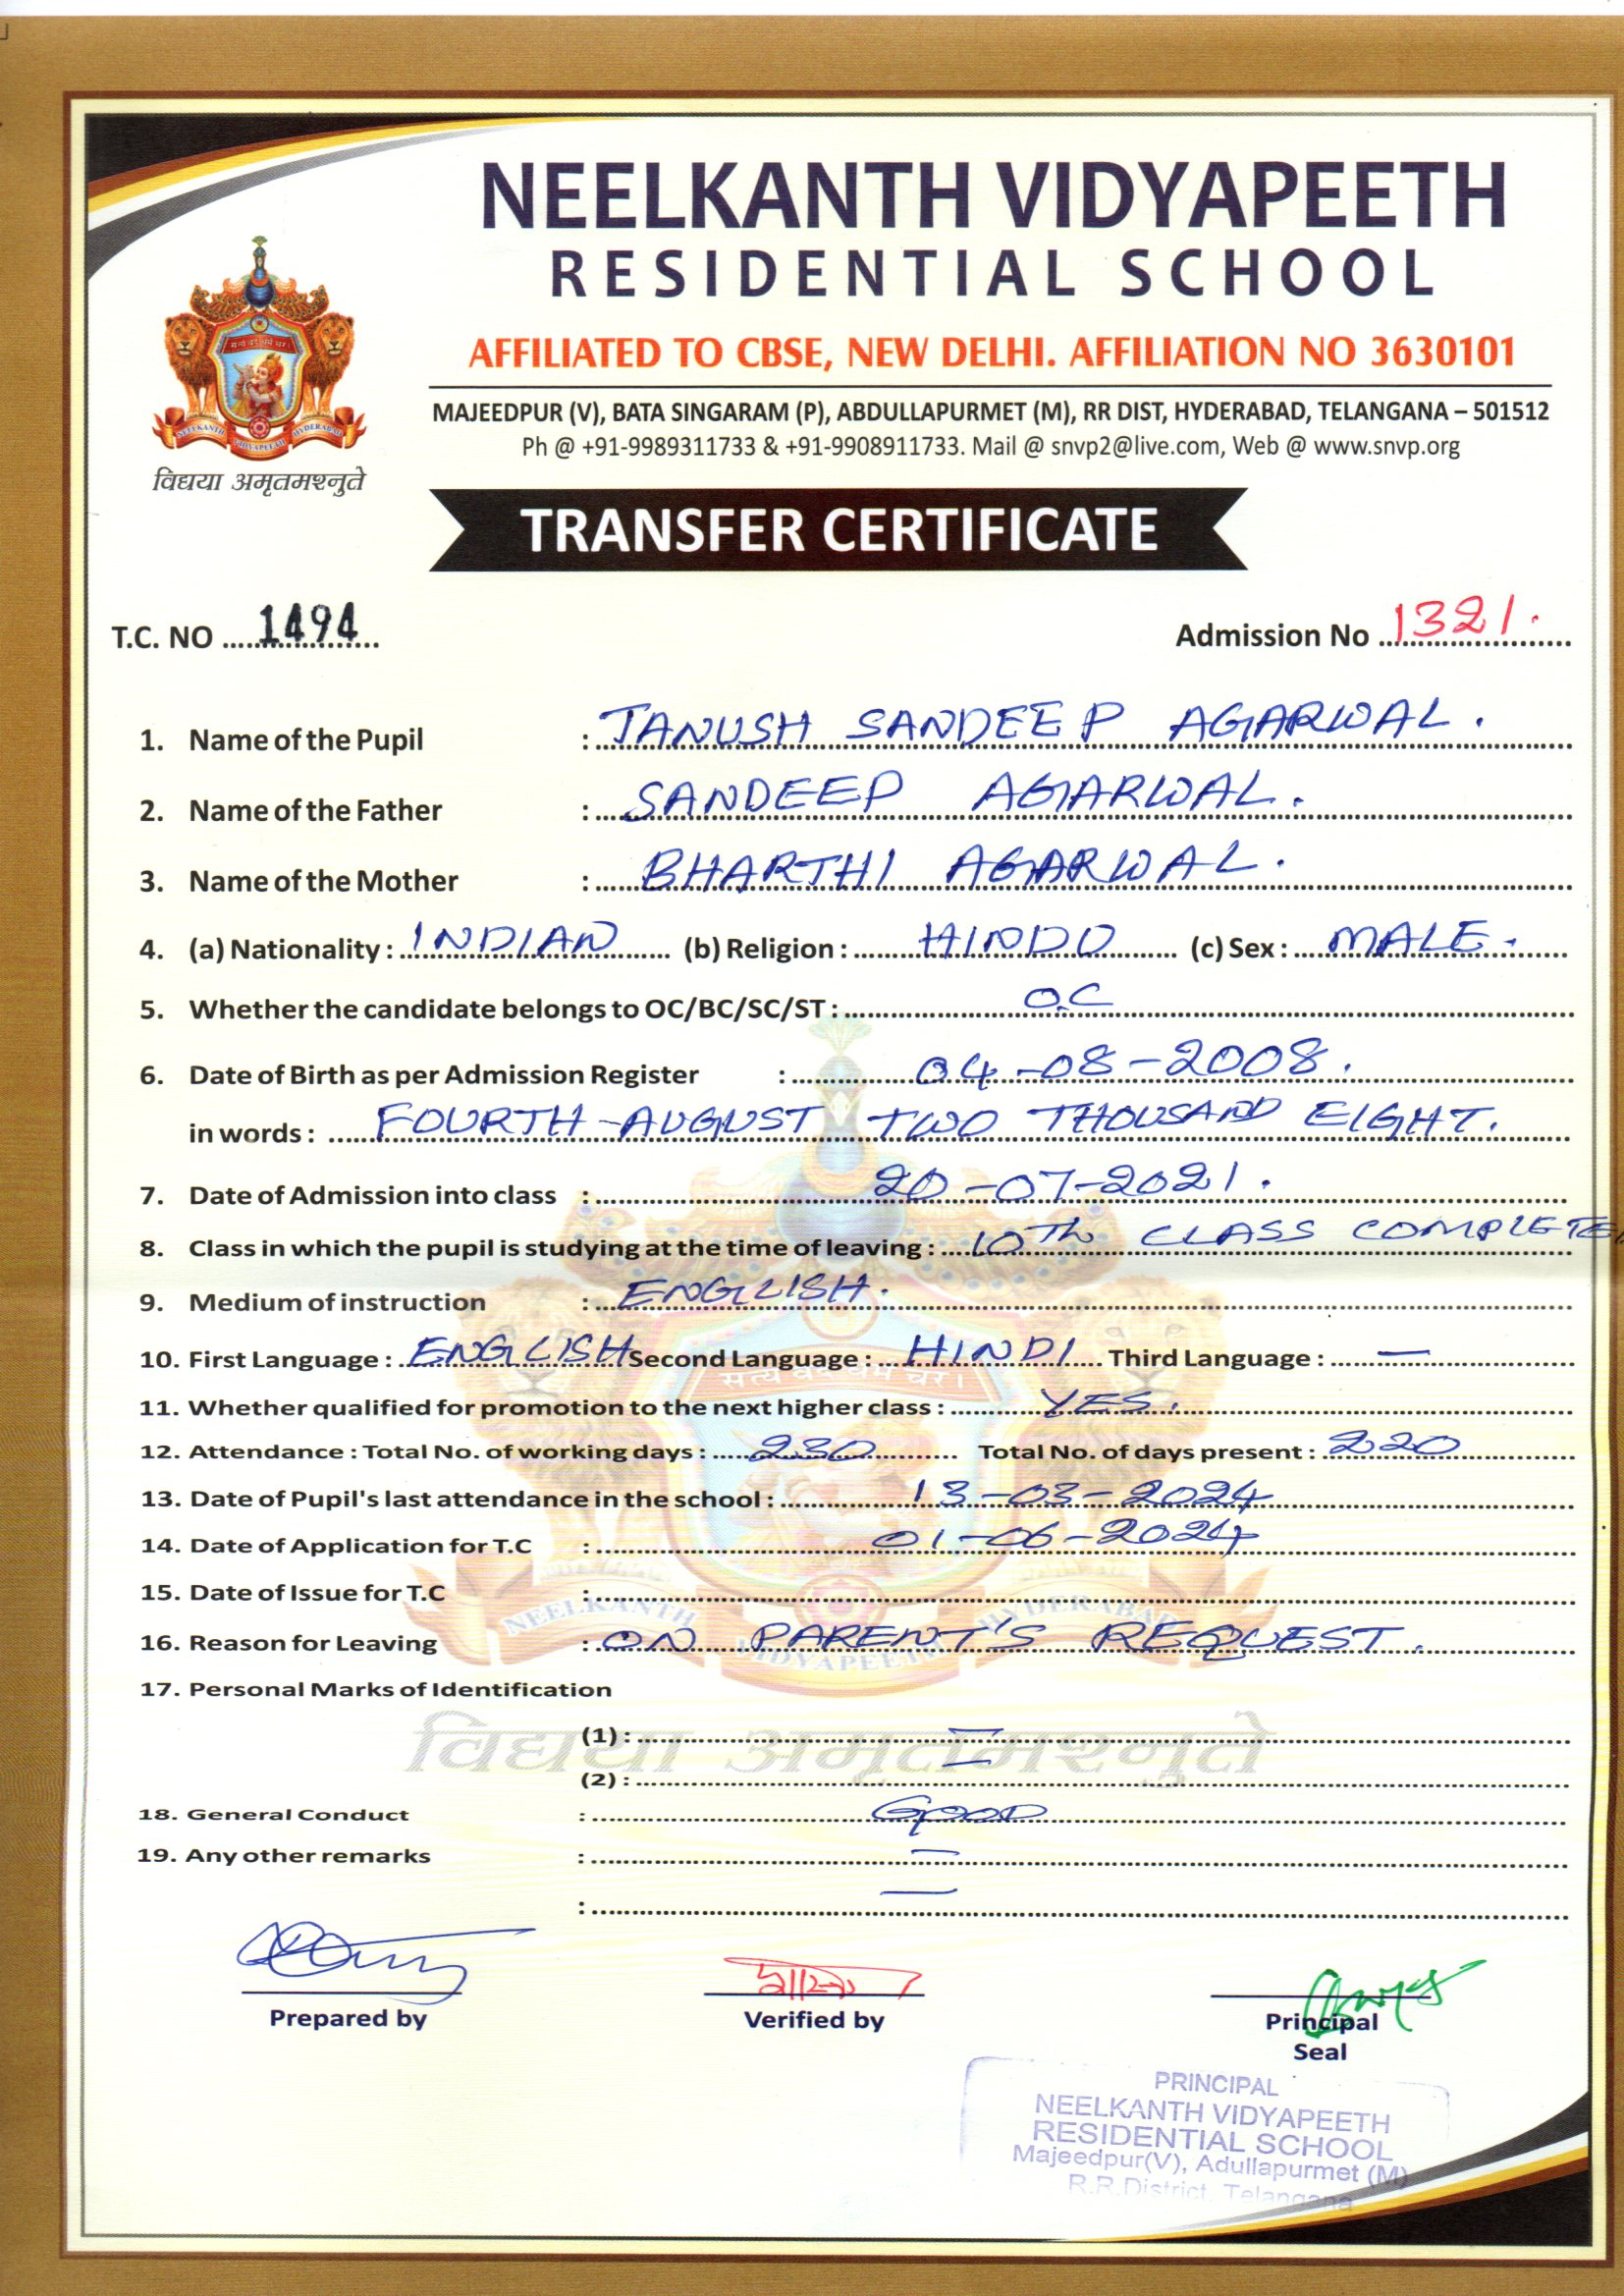 NEELKANTH VIDYAPEETH
RESIDENTIAL SCHOOL
AFFILIATED TO CBSE, NEW DELHI. AFFILIATION NO 3630101
MAJEEDPUR (V), BATA SINGARAM (P), ABDULLAPURMET (M), RR DIST, HYDERABAD, TELANGANA – 501512
Ph @ +91-9989311733 & +91-9908911733. Mail @ snvp2@live.com, Web @ www.snvp.org
NEELKANTH VIDYAPEETH HYDERABAD
विद्यया अमृतमश्नुते
TRANSFER CERTIFICATE
T.C. NO 1494 Admission No 1321.
1. Name of the Pupil : TANUSH SANDEEP AGARWAL.
2. Name of the Father : SANDEEP AGARWAL.
3. Name of the Mother : BHARTHI AGARWAL.
4. (a) Nationality : INDIAN (b) Religion : HINDU (c) Sex : MALE.
5. Whether the candidate belongs to OC/BC/SC/ST : O.C
6. Date of Birth as per Admission Register : 04-08-2008.
in words : FOURTH-AUGUST TWO THOUSAND EIGHT.
7. Date of Admission into class : 20-07-2021.
8. Class in which the pupil is studying at the time of leaving : 10th CLASS COMPLETE
9. Medium of instruction : ENGLISH.
10. First Language : ENGLISH Second Language : HINDI Third Language : —
सत्यं वद धर्मं चर।
11. Whether qualified for promotion to the next higher class : YES.
12. Attendance : Total No. of working days : 230 Total No. of days present : 220
13. Date of Pupil's last attendance in the school : 13-03-2024
14. Date of Application for T.C : 01-06-2024
15. Date of Issue for T.C :
NEELKANTH VIDYAPEETH HYDERABAD
16. Reason for Leaving : ON PARENT'S REQUEST.
17. Personal Marks of Identification
(1) : —
विद्यया अमृतमश्नुते
(2) : —
18. General Conduct : GOOD
19. Any other remarks : —
: —
Prepared by Verified by Principal
Seal
PRINCIPAL
NEELKANTH VIDYAPEETH
RESIDENTIAL SCHOOL
Majeedpur(V), Adullapurmet (M)
R.R.District, Telangana